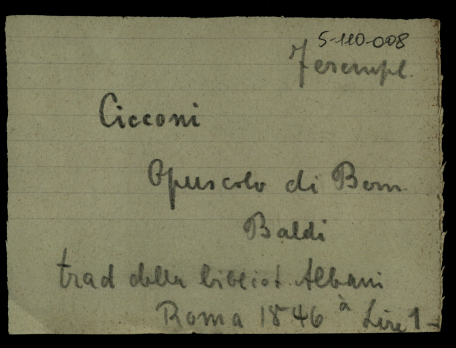 5-110-008
7 esempl.
Cicconi
Opuscolo di Bern
Baldi
trad della bibliot Albani
Roma 1846 à Lire 1-